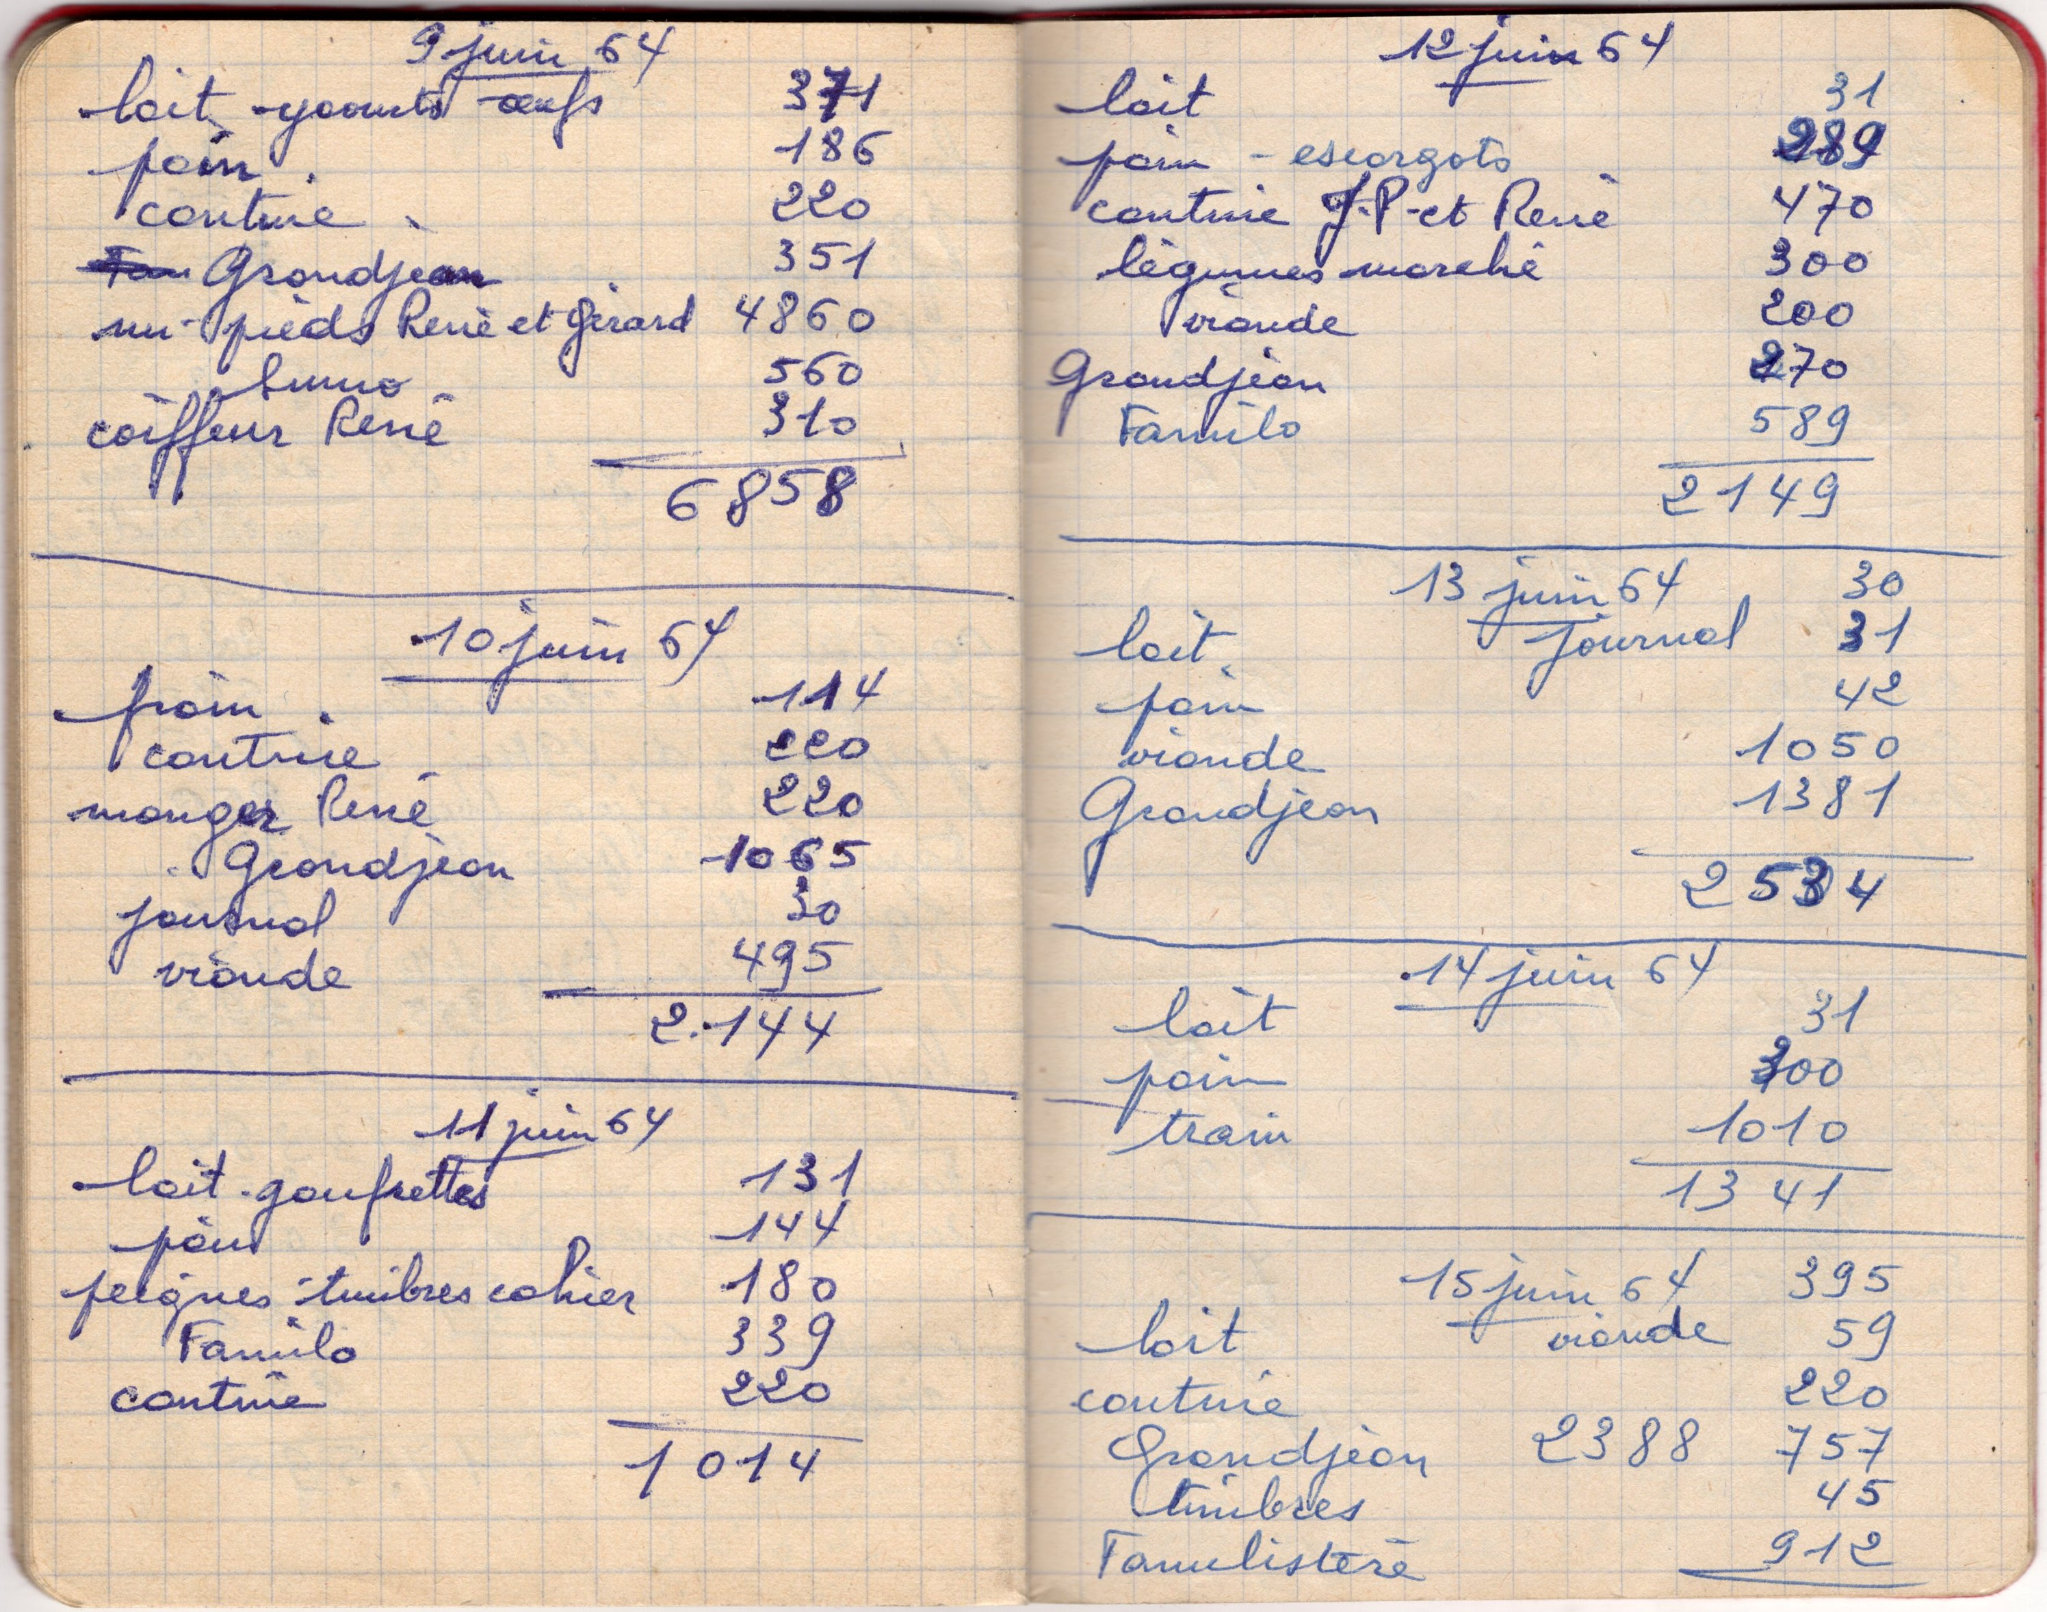 9 juin 64
lait - yaourts œufs 371
pain 186
cantine 220
Grandjean 351
nu-pieds René et Gérard 4860
560
coiffeur René 310
6858
10 juin 64
pain 114
cantine 220
manger René 220
Grandjean 1065
journal 30
viande 495
2.144
11 juin 64
lait - gaufrettes 131
pain 144
peignes - timbres cahier 180
Familo 339
cantine 220
1014
12 juin 64
lait 31
pain - escargots 289
cantine J.P. et René 470
légumes marché 300
viande 200
Grandjean 270
Familo 589
2149
13 juin 64 30
lait journal 31
pain 42
viande 1050
Grandjean 1381
2534
14 juin 64
lait 31
pain 300
train 1010
1341
15 juin 64 395
lait viande 59
cantine 220
Grandjean 2388 757
timbres 45
Familistère 912